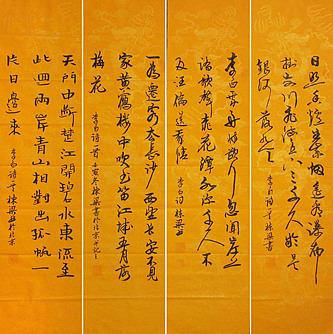 日照香炉生紫烟遥看瀑布
掛前川飛流直下三千尺疑是
銀河落九天 李白詩 棟梁書
李白乘舟将欲行忽聞岸上
踏歌聲桃花潭水深千尺不
及汪倫送我情 李白詩 棟梁
一為遷客去長沙西望長安不見
家黄鶴樓中吹玉笛江城五月落
梅花 李白詩一首 棟梁書於北京
天門中断楚江開碧水東流至
此迴兩岸青山相對出孤帆一
片日邊来 李白詩 棟梁 於北京